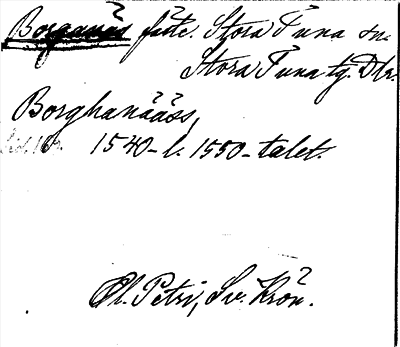 Borganäs fäste. Stora Tuna sn.
Stora Tuna tg. Dlr.
Borghanääss,
1540- l. 1550-talet.
Ol. Petri, Sv. Krön.